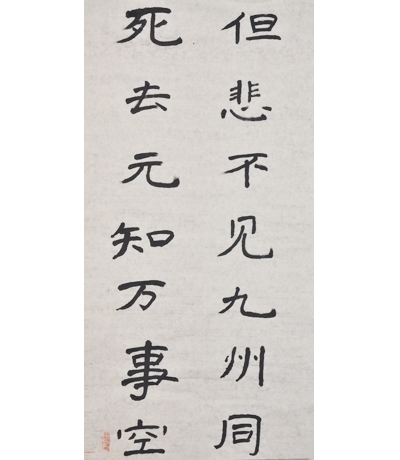 但悲不见九州同
死去元知万事空